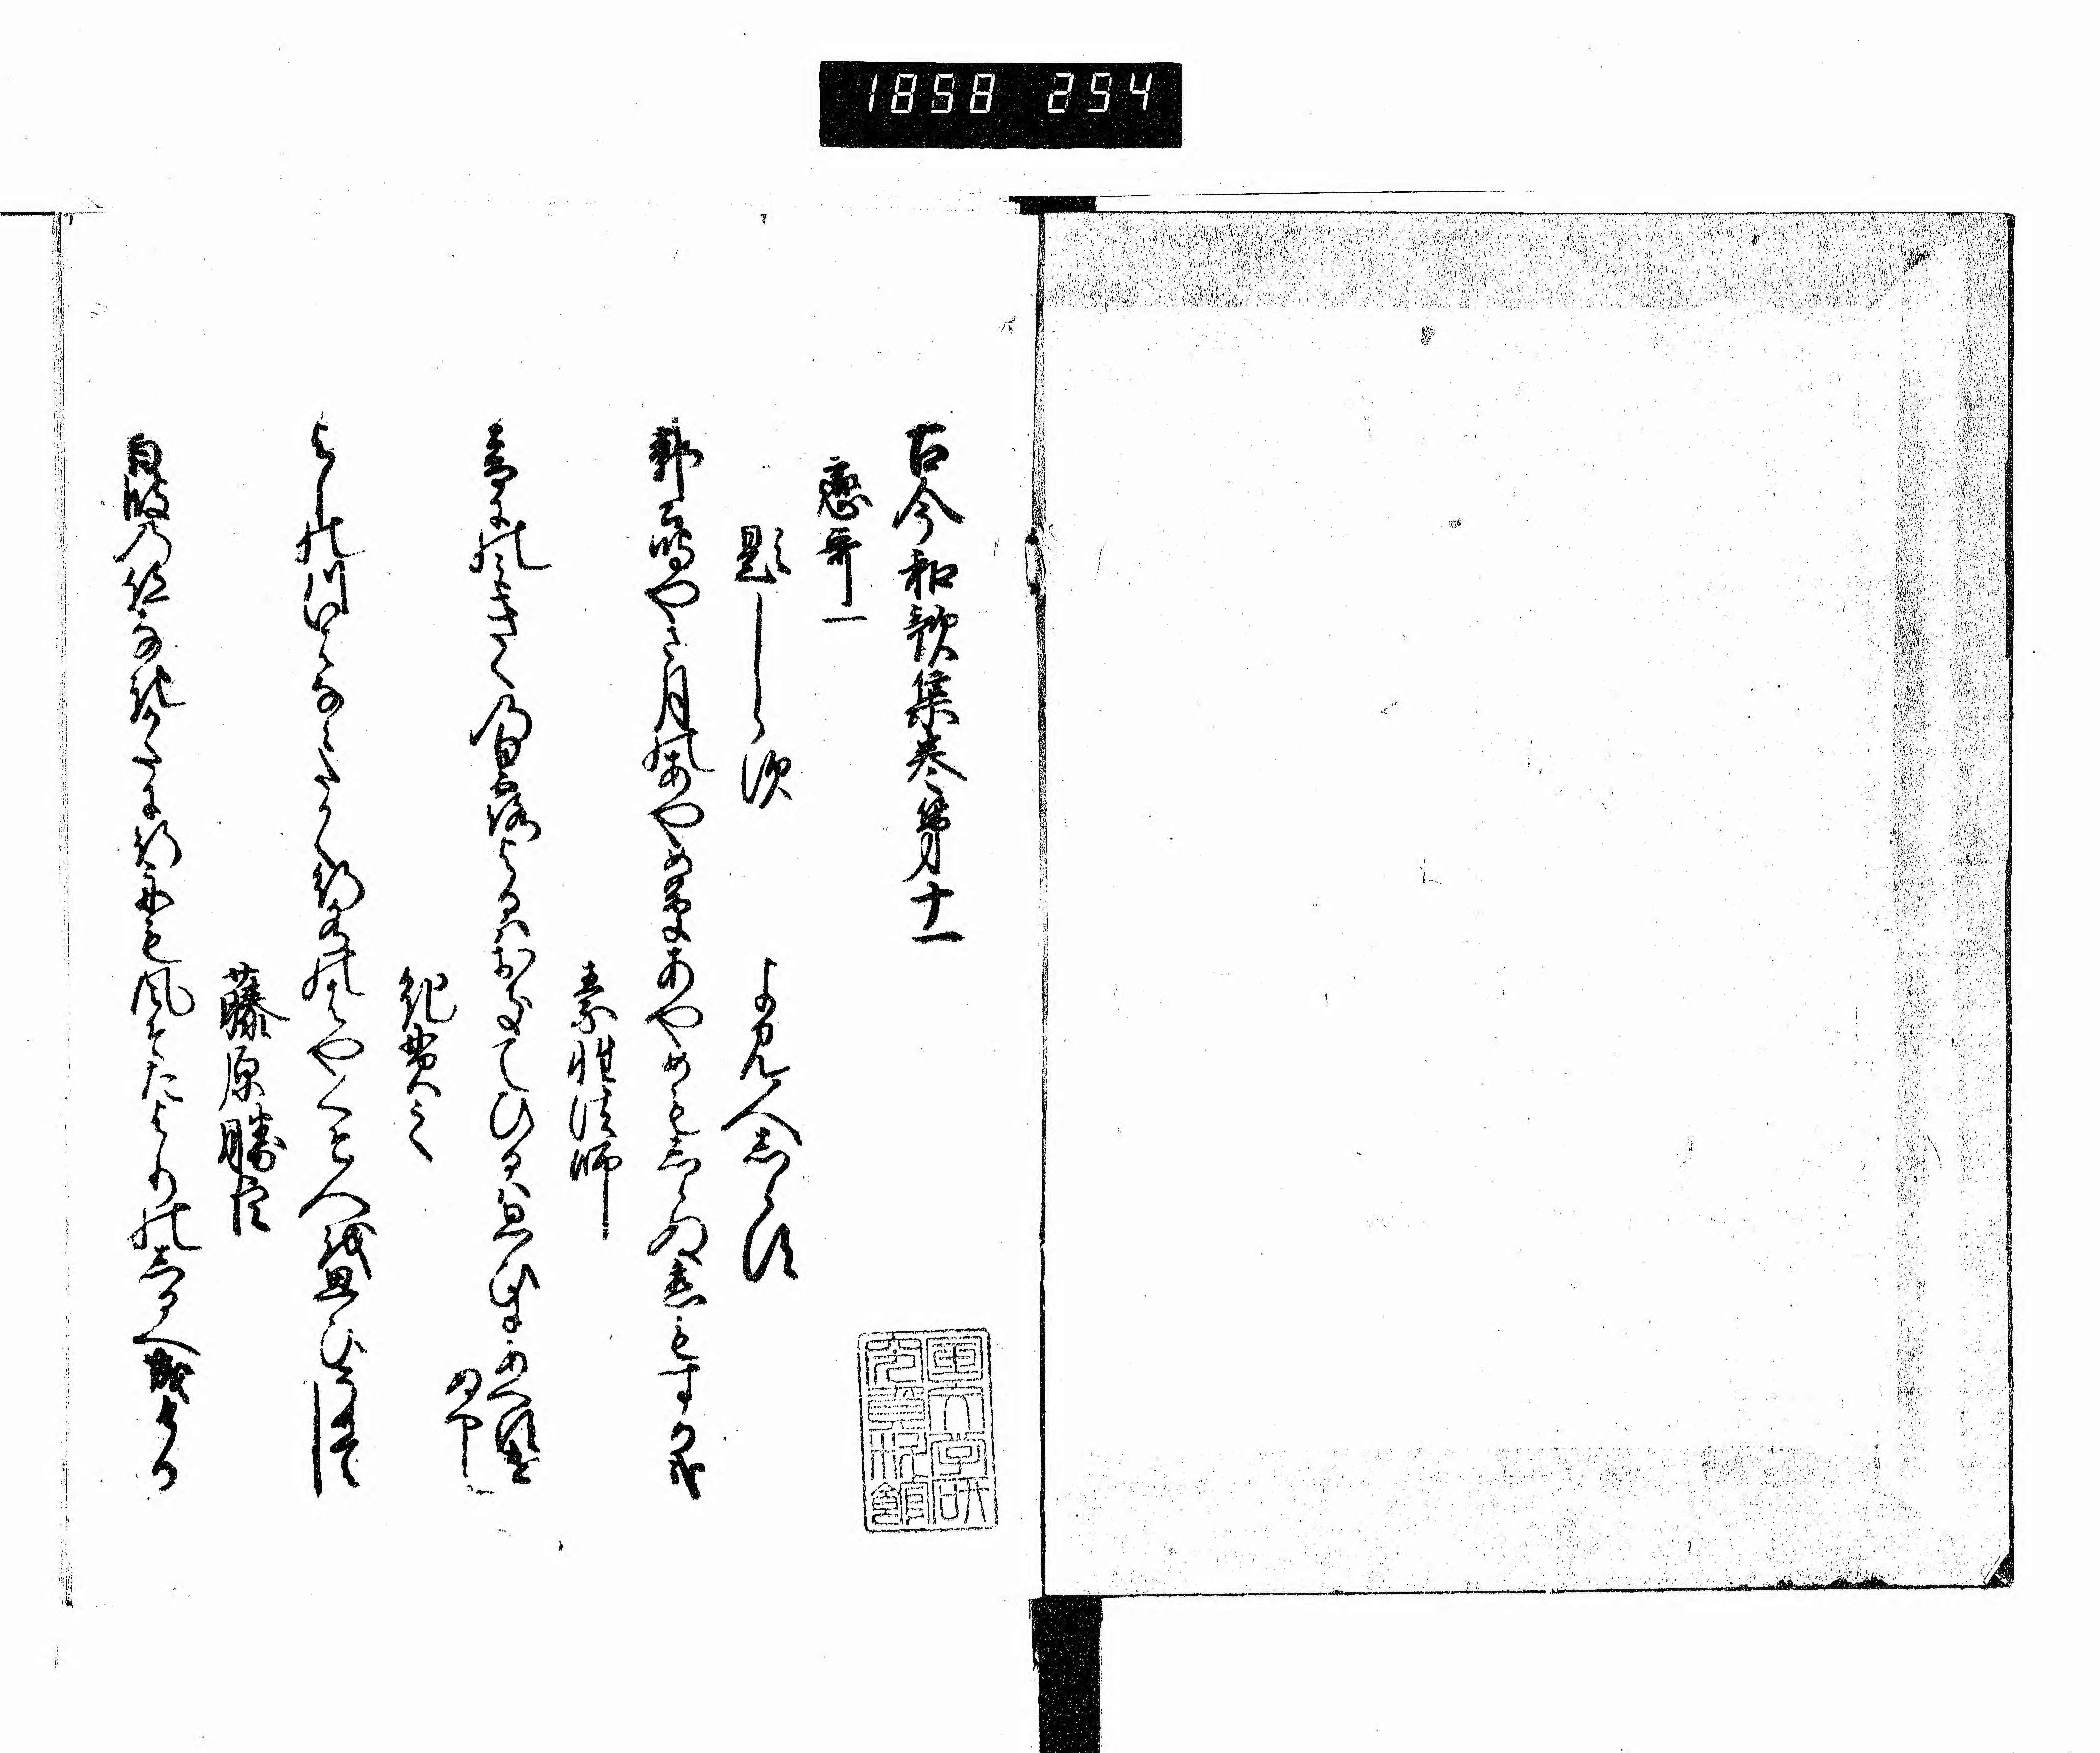 1858 254
古今和歌集巻第十一
恋哥一
題しらす
よみ人しらす
郭公鳴やさ月のあやめ草あやめもしらぬ恋もするかな
素性法師
音にのみきくの白露よるはおきてひるは思ひにあへすけ
ぬへし
紀貫之
よしの川いはなみたかく行水のはやくそ人を思ひそめてし
藤原勝臣
白波のあとなきかたに行舟も風そたよりのしるへなりける
国文学研
究資料館